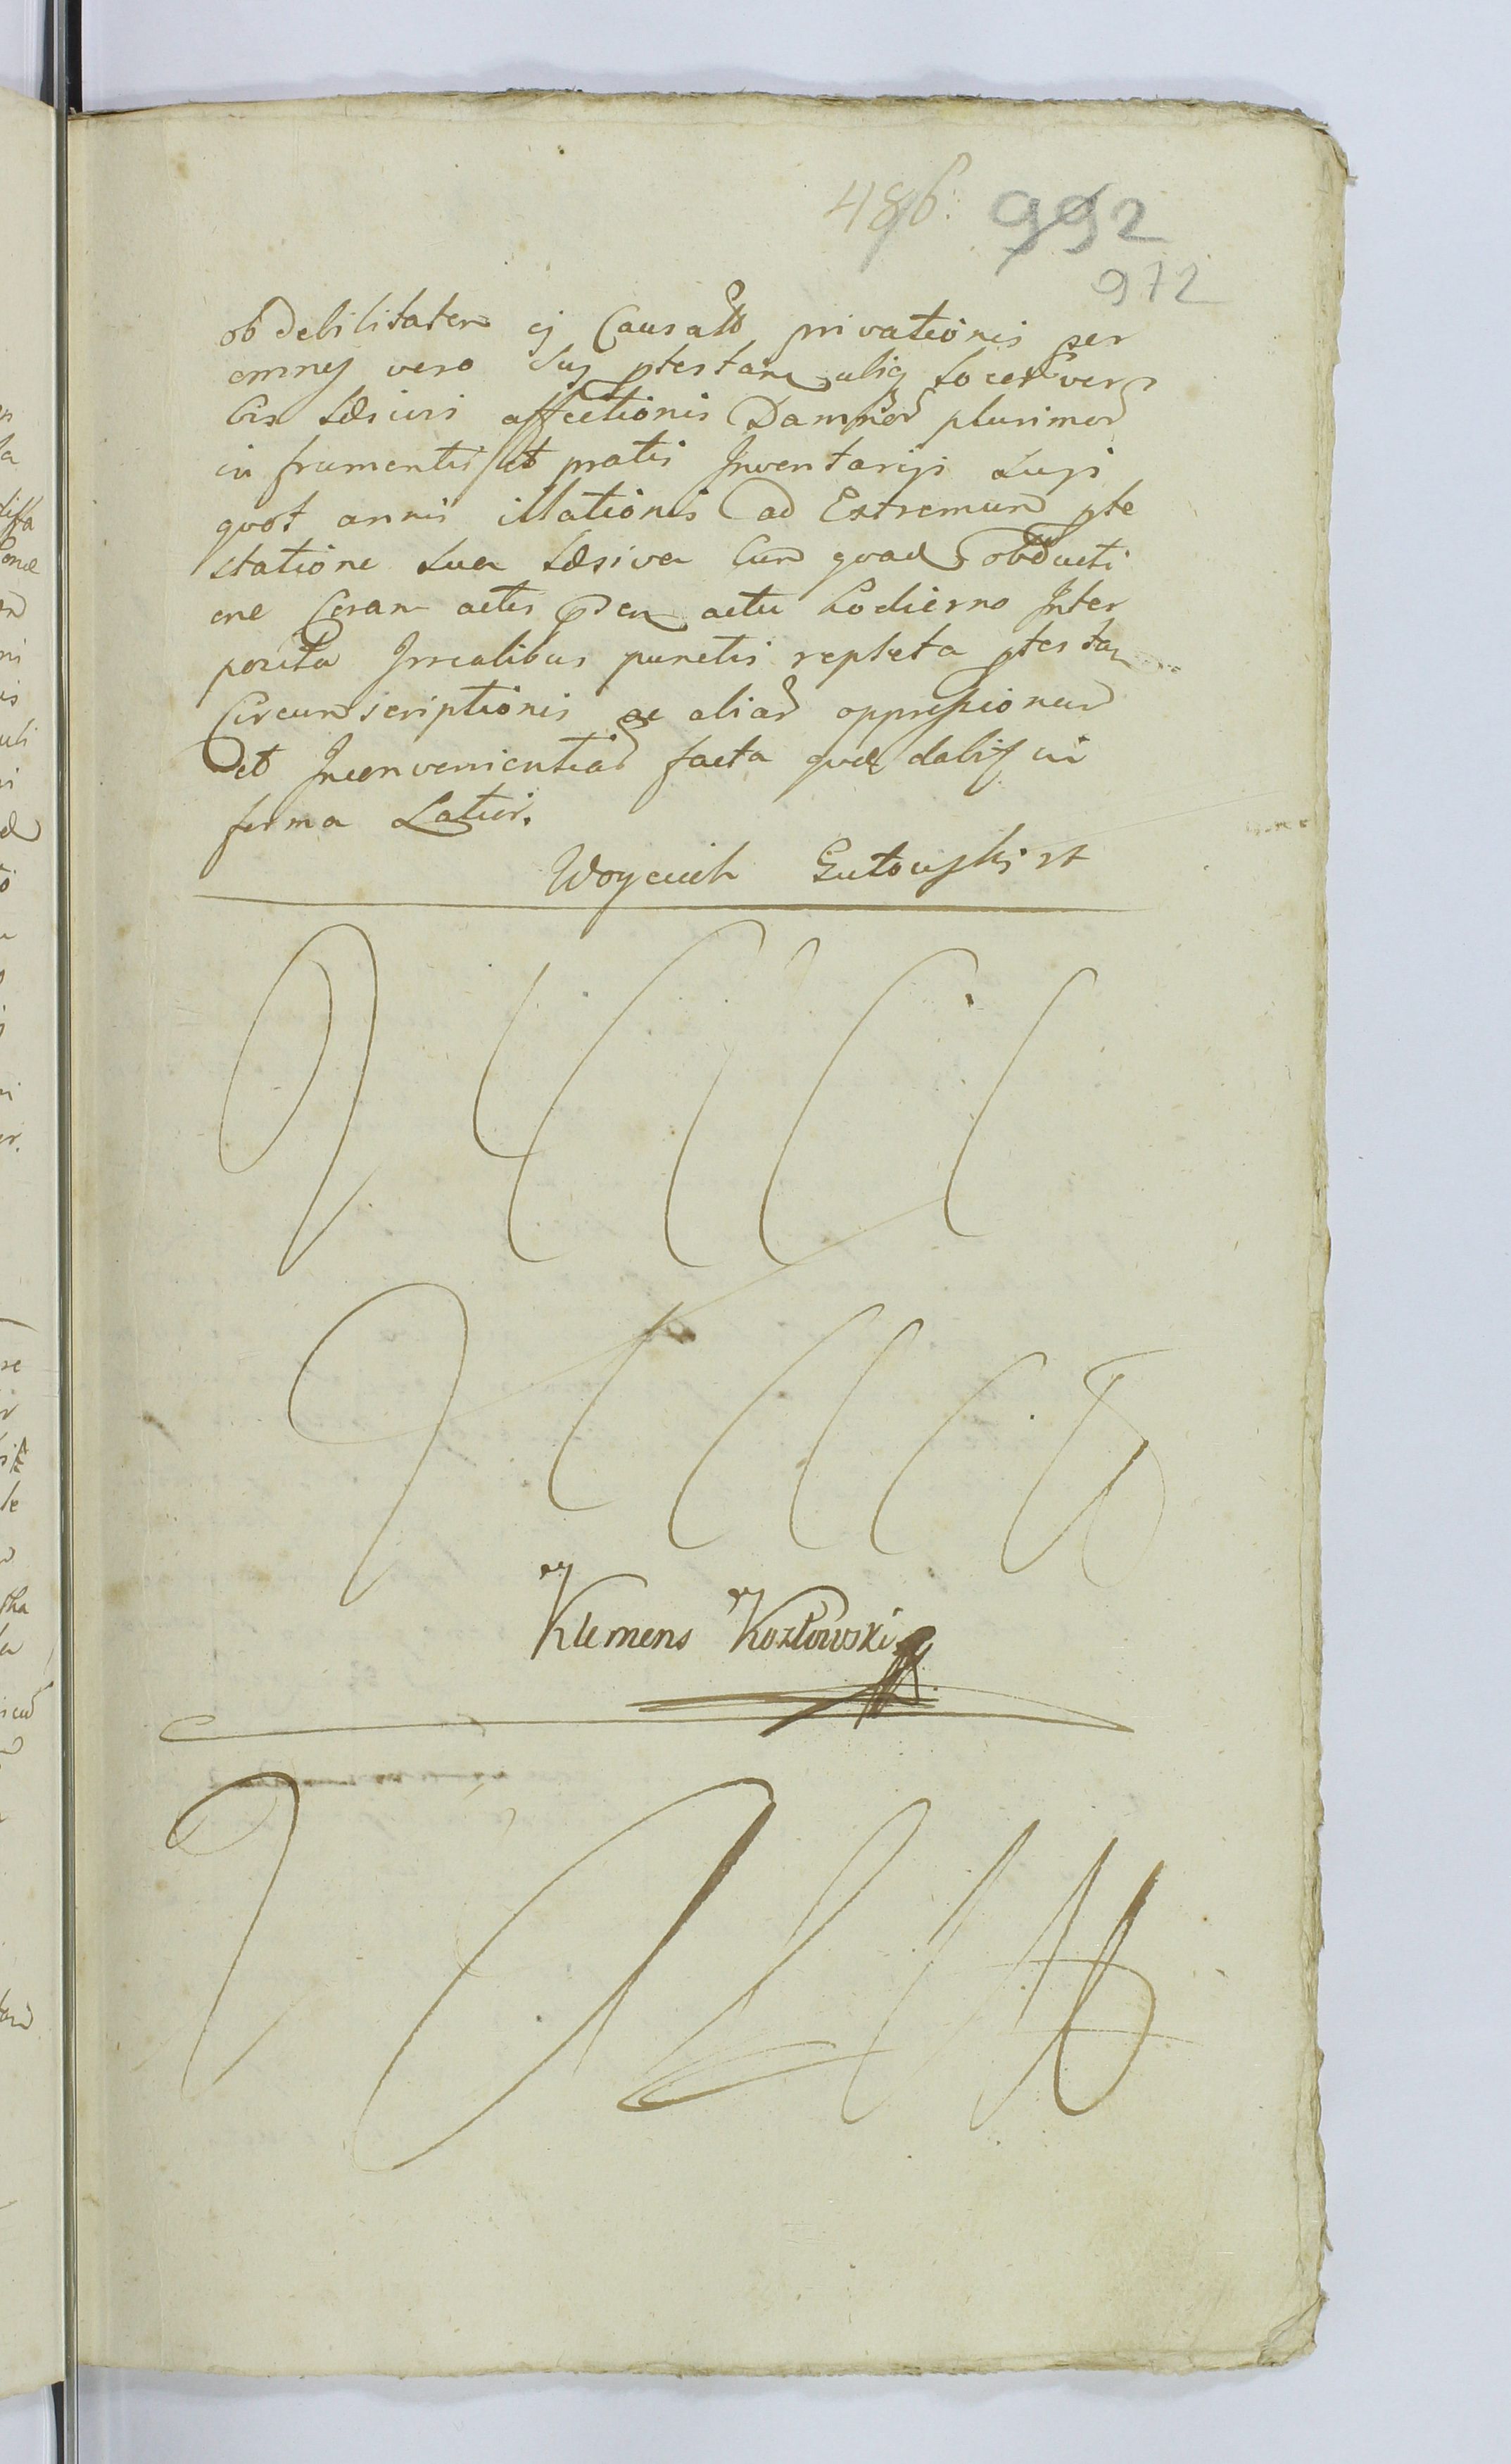 486. 992
972
ob debilitatem ej Causato privationis per
omnes vero suz ptestanz aliq
bis Læsivi affectionis Damnor plurimor
in frumentis et pratis Inventarijs suis
quot annis illationis ad Extremum pte
statione sua Læsiva cum quad obducti
one Coram actis actu hodierno Inter
posita Irrealibus punctis repleta ptestaz
Circumscriptionis ac aliar oppressionum
et Inconvenientiar facta quæ dabis in
forma Latiori.
Woyciech Gutowski
Klemens Kozłowski